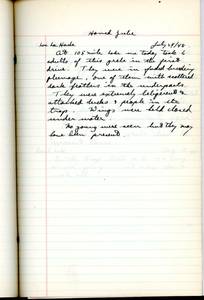 Horned Grebe
Lac La Hache July 29/42
At 105 mile lake me today took 6
adults of this grebe in the first
drive. They were in faded breeding
plumage, one of them with scattered
dark feathers in the underparts.
They were extremely beligerent &
attacked ducks & people in the
trap. Wings were held closed
under water.
No young were seen but they may
have been present.